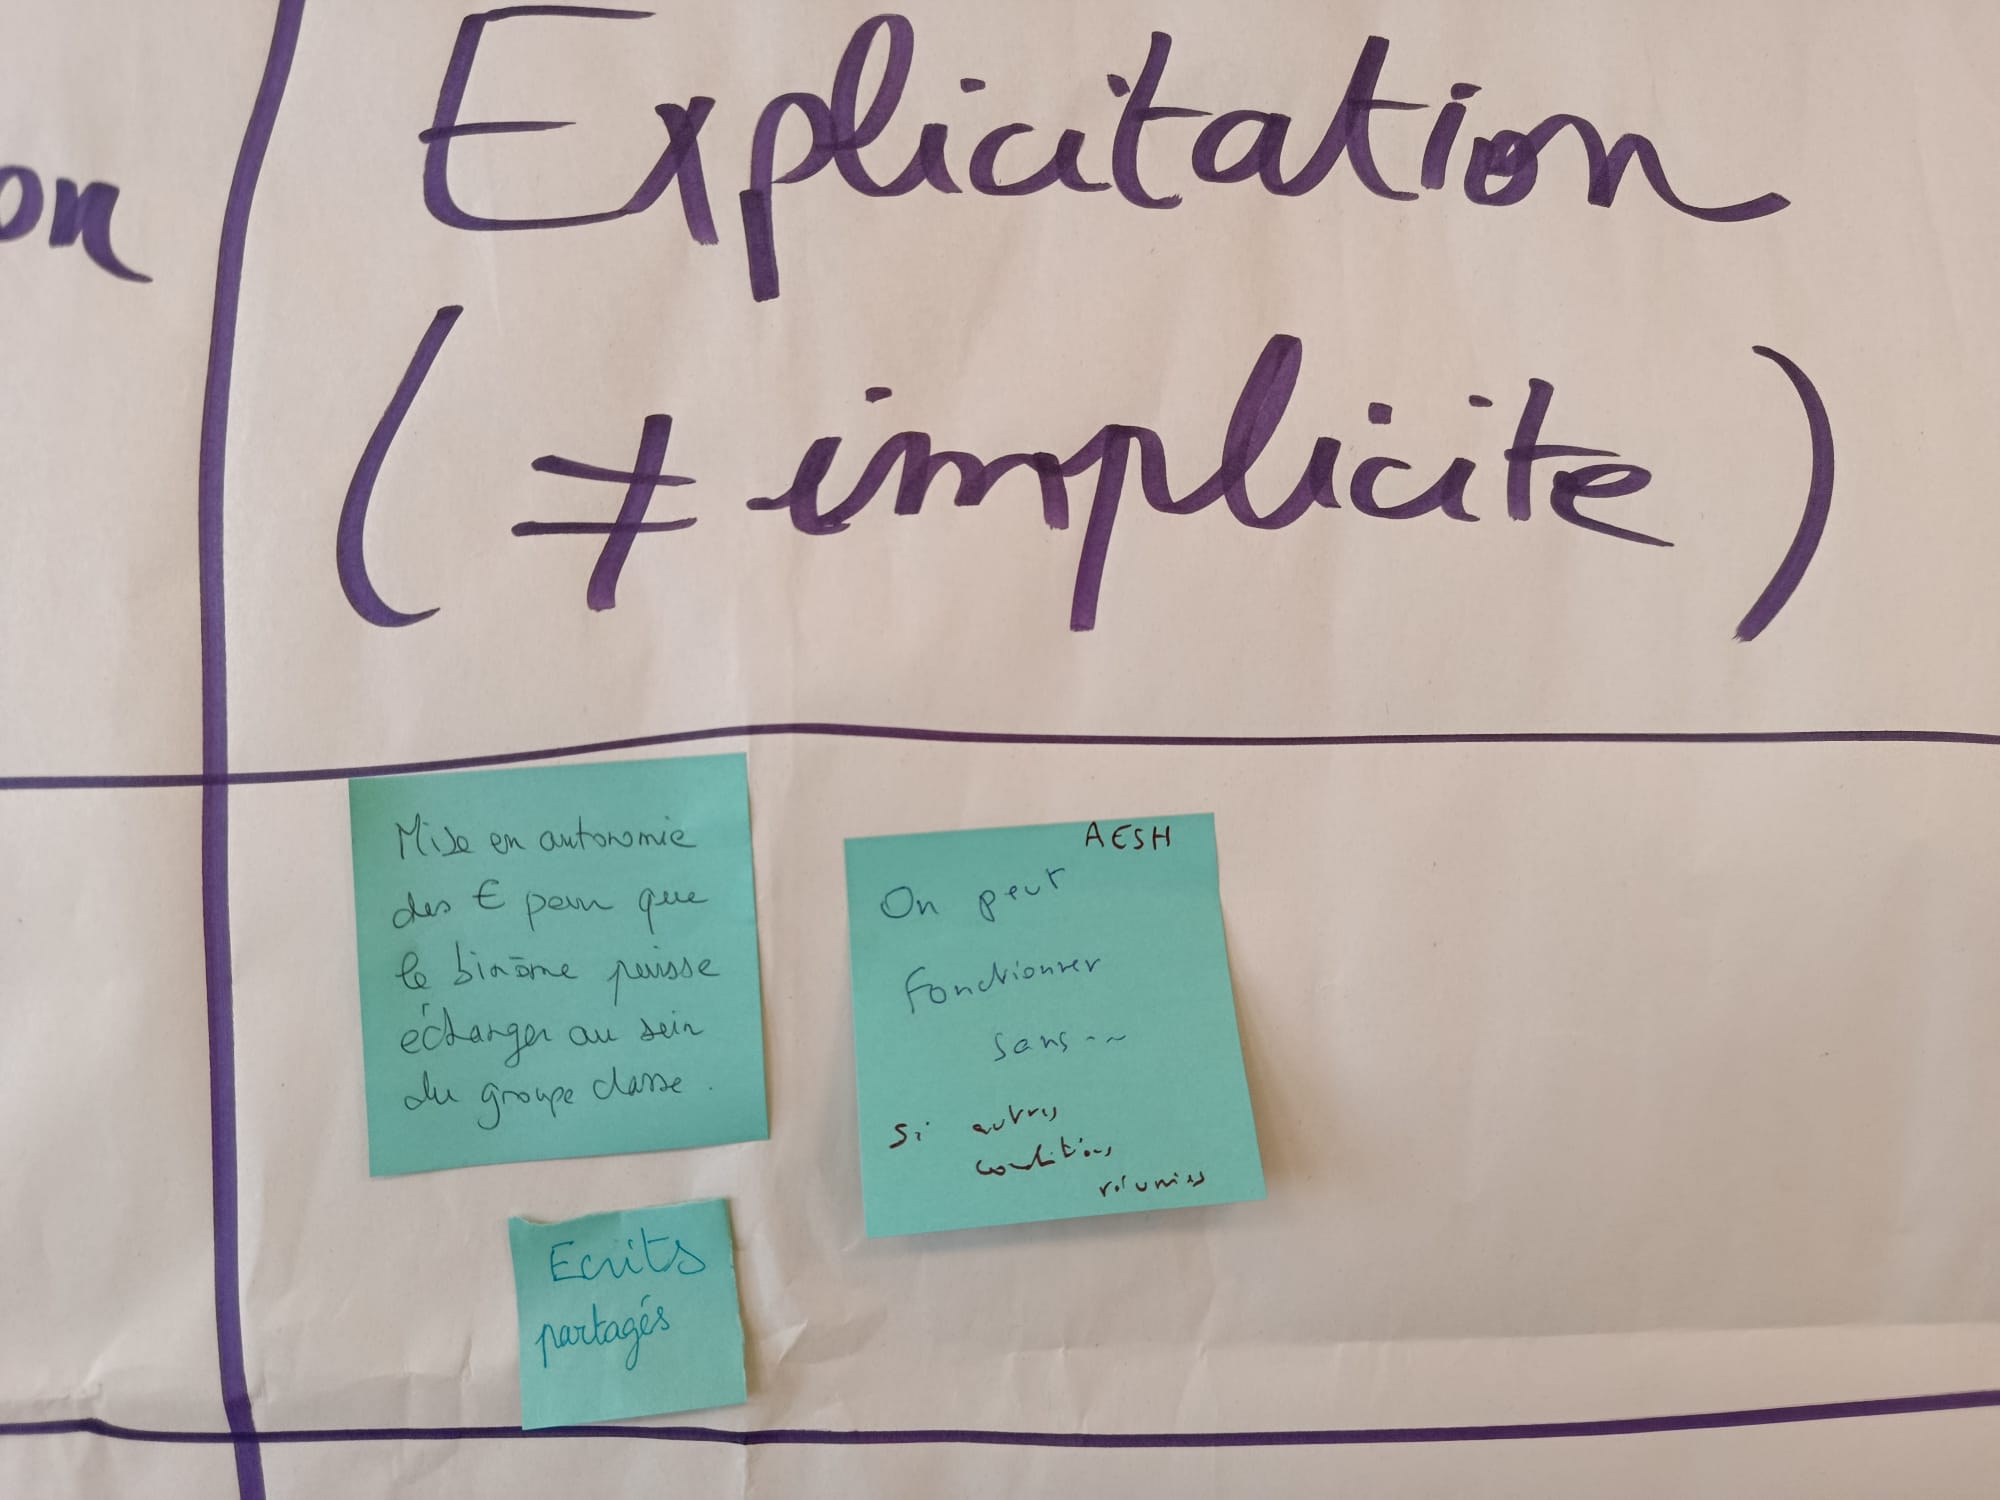 on
Explicitation
(≠ implicite)
Mise en autonomie
des € pour que
le binôme puisse
échanger au sein
du groupe classe.
AESH
On peut
fonctionner
sans...
Si autres
conditions
réunies
Ecrits
partagés